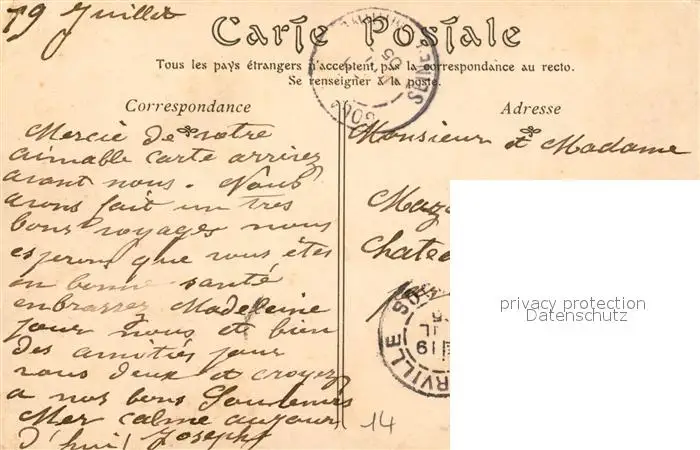 19 Juillet
Carte Postale
Tous les pays étrangers n'acceptent pas la correspondance au recto.
Se renseigner à la poste.
Correspondance
Adresse
Mercie de votre
aimable carte arrivez
avant nous. Nous
avons fait un tres
bons voyages nous
esperons que vous êtes
en bonne santé
enbrassez Madeleine
pour nous et bien
des amitiés pour
vous deux et croyez
a nos bons Souvenirs
Mer calme aujour
d'hui! Joseph
Monsieur et Madame
Maz
Chate
RVILLE
19
14
privacy protection
Datenschutz